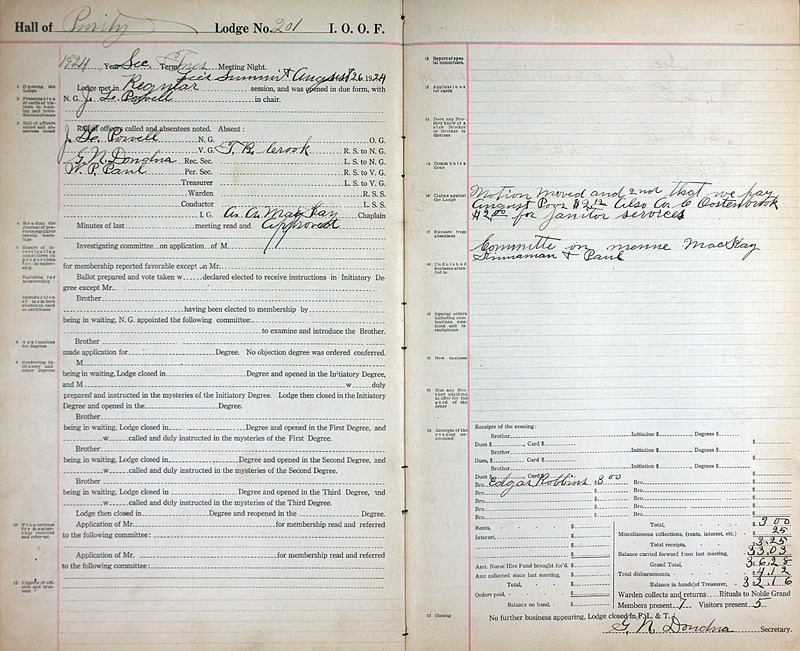 Hall of Purity Lodge No. 201 I. O. O. F.
1924 Year Sec Term Meeting Night.
Lee's Summit August 26, 1924
1 Opening the Lodge
Lodge met in Regular session, and was opened in due form, with
N. G. J. Le Powell in chair.
Roll of officers called and absentees noted. Absent:
J. Le Powell N. G. O. G.
V. G. T. B. Crook R. S. to N. G.
G. N. Dondna Rec. Sec. L. S. to N. G.
W. P. Paul Per. Sec. R. S. to V. G.
Treasurer L. S. to V. G.
Warden R. S. S.
Conductor L. S. S.
I. G. A. A. MacKay Chaplain
Minutes of last meeting read and Approved
Investigating committee on application of M
for membership reported favorable except on Mr.
Ballot prepared and vote taken w declared elected to receive instructions in Initiatory De-
gree except Mr.
Brother
having been elected to membership by
being in waiting, N. G. appointed the following committee:
to examine and introduce the Brother.
Brother
made application for Degree. No objection degree was ordered conferred.
M
being in waiting, Lodge closed in Degree and opened in the Initiatory Degree,
and M w duly
prepared and instructed in the mysteries of the Initiatory Degree. Lodge then closed in the Initiatory
Degree and opened in the Degree.
Brother
being in waiting, Lodge closed in Degree and opened in the First Degree, and
w called and duly instructed in the mysteries of the First Degree.
Brother
being in waiting, Lodge closed in Degree and opened in the Second Degree, and
w called and duly instructed in the mysteries of the Second Degree.
Brother
being in waiting, Lodge closed in Degree and opened in the Third Degree, and
w called and duly instructed in the mysteries of the Third Degree.
Lodge then closed in Degree and reopened in the Degree.
Application of Mr. for membership read and referred
to the following committee:
Application of Mr. for membership read and referred
to the following committee:
12 Report of special committees.
13 Applications for cards
14 Does any Brother know of a sick Brother or Brother in distress
15 Communications
16 Claims against the Lodge
Motion moved and 2nd that we pay
August Poys $2.12 Also A. C Oosterbook
$2.00 for janitor services
17 Excuses from absentees
Committe on menne MacKay
Sinnaman & Paul
18 Unfinished business attended to
20 New business
21 Has any Brother anything to offer for the good of the order
22 Receipts of the evening announced
Receipts of the evening:
Brother Initiation $ Degrees $
Dues $ Card $ $
Brother Initiation $ Degrees $
Dues, $ Card $ $
Brother Initiation $ Degrees $
Dues $ Card $ $
Bro. Edgar Robbins 3 00 Bro. $
Bro. $ Bro. $
Bro. $ Bro. $
Bro. $ Bro. $
Bro. $ Bro. $
Rents, $ Total, $ 3 00
Interest, $ Miscellaneous collections, (rents, interest, etc.) 25
Total receipts, 3.25
$ Balance carried forward from last meeting, 33.03
Amt. Nurse Hire Fund brought for'd. $ Grand Total, 36.28
Amt collected since last meeting, $ Total disbursements, $ 4.12
Total, $ Balance in hands of Treasurer, 32.16
Orders paid, $ Warden collects and returns Rituals to Noble Grand
Balance on hand, $ Members present 7 Visitors present 5
23 Closing
No further business appearing, Lodge closed in F. L. & T.
G. N. Dondna Secretary.